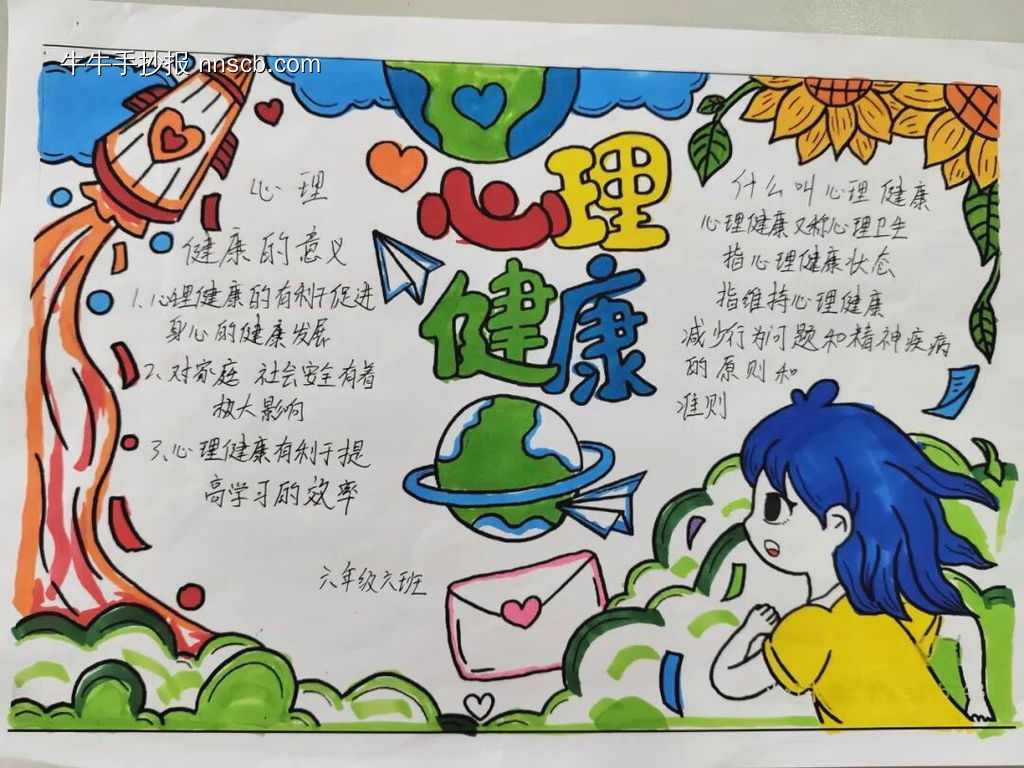 牛牛手抄报 nnscb.com
心理
健康
心理
健康的意义
1.心理健康的有利于促进
身心的健康发展
2、对家庭 社会安全有着
极大影响
3、心理健康有利于提
高学习的效率
六年级六班
什么叫心理健康
心理健康又称心理卫生
指心理健康状态
指维持心理健康
减少行为问题和精神疾病
的原则和
准则